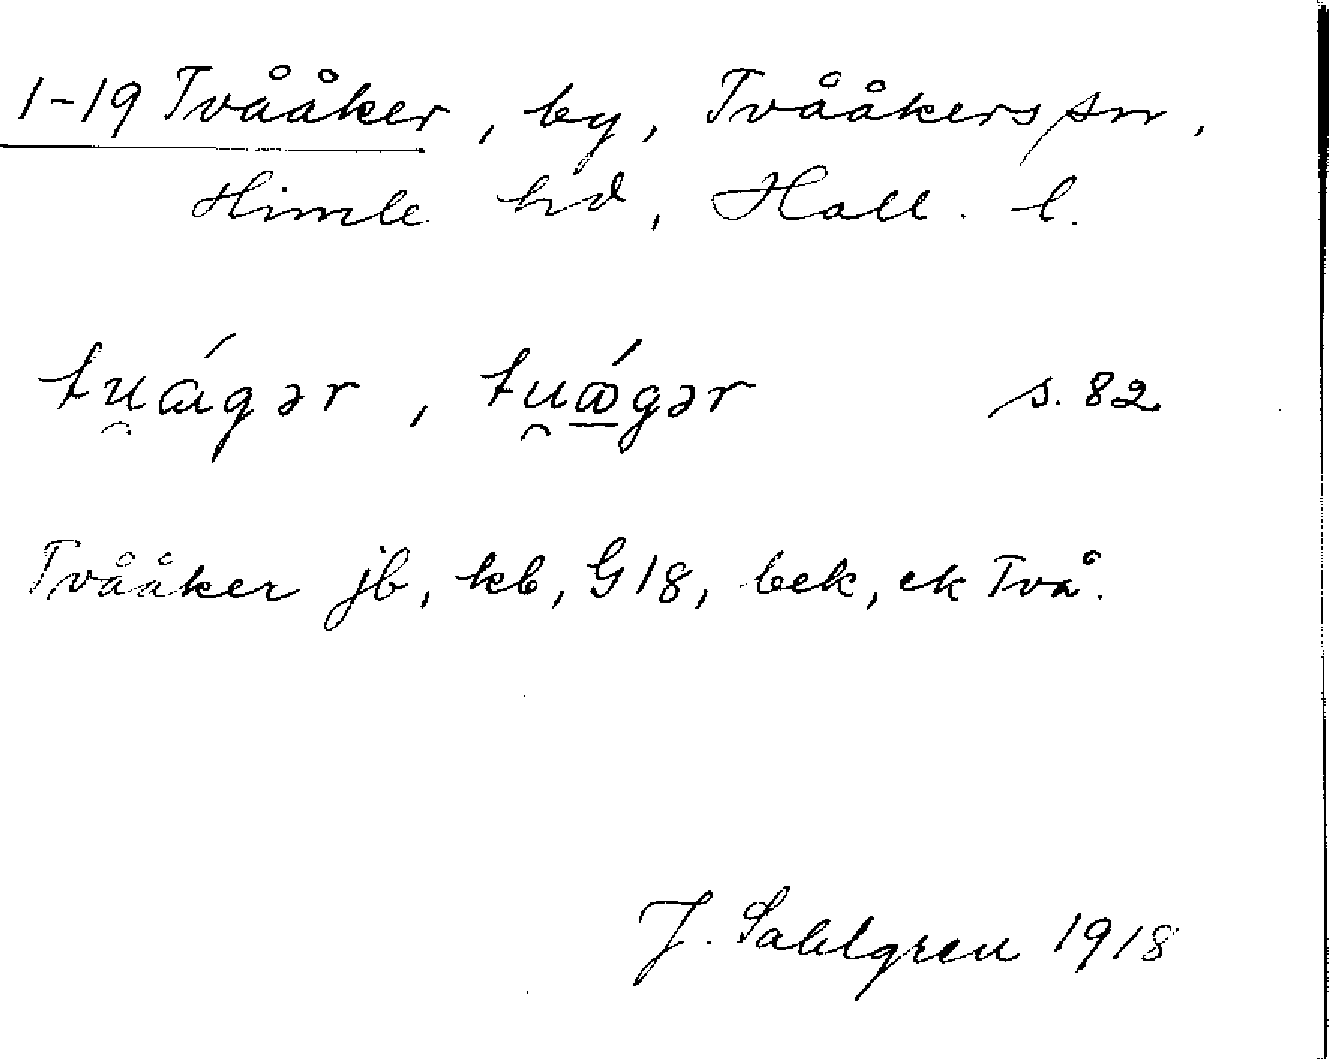 1-19 Tvååker, by, Tvååkers sn,
Himle hd, Hall. l.
tu̯ágər, tu̯ǻgər s. 82
Tvååker jb, kb, G18, bek, ek Två.
J. Sahlgren 1918